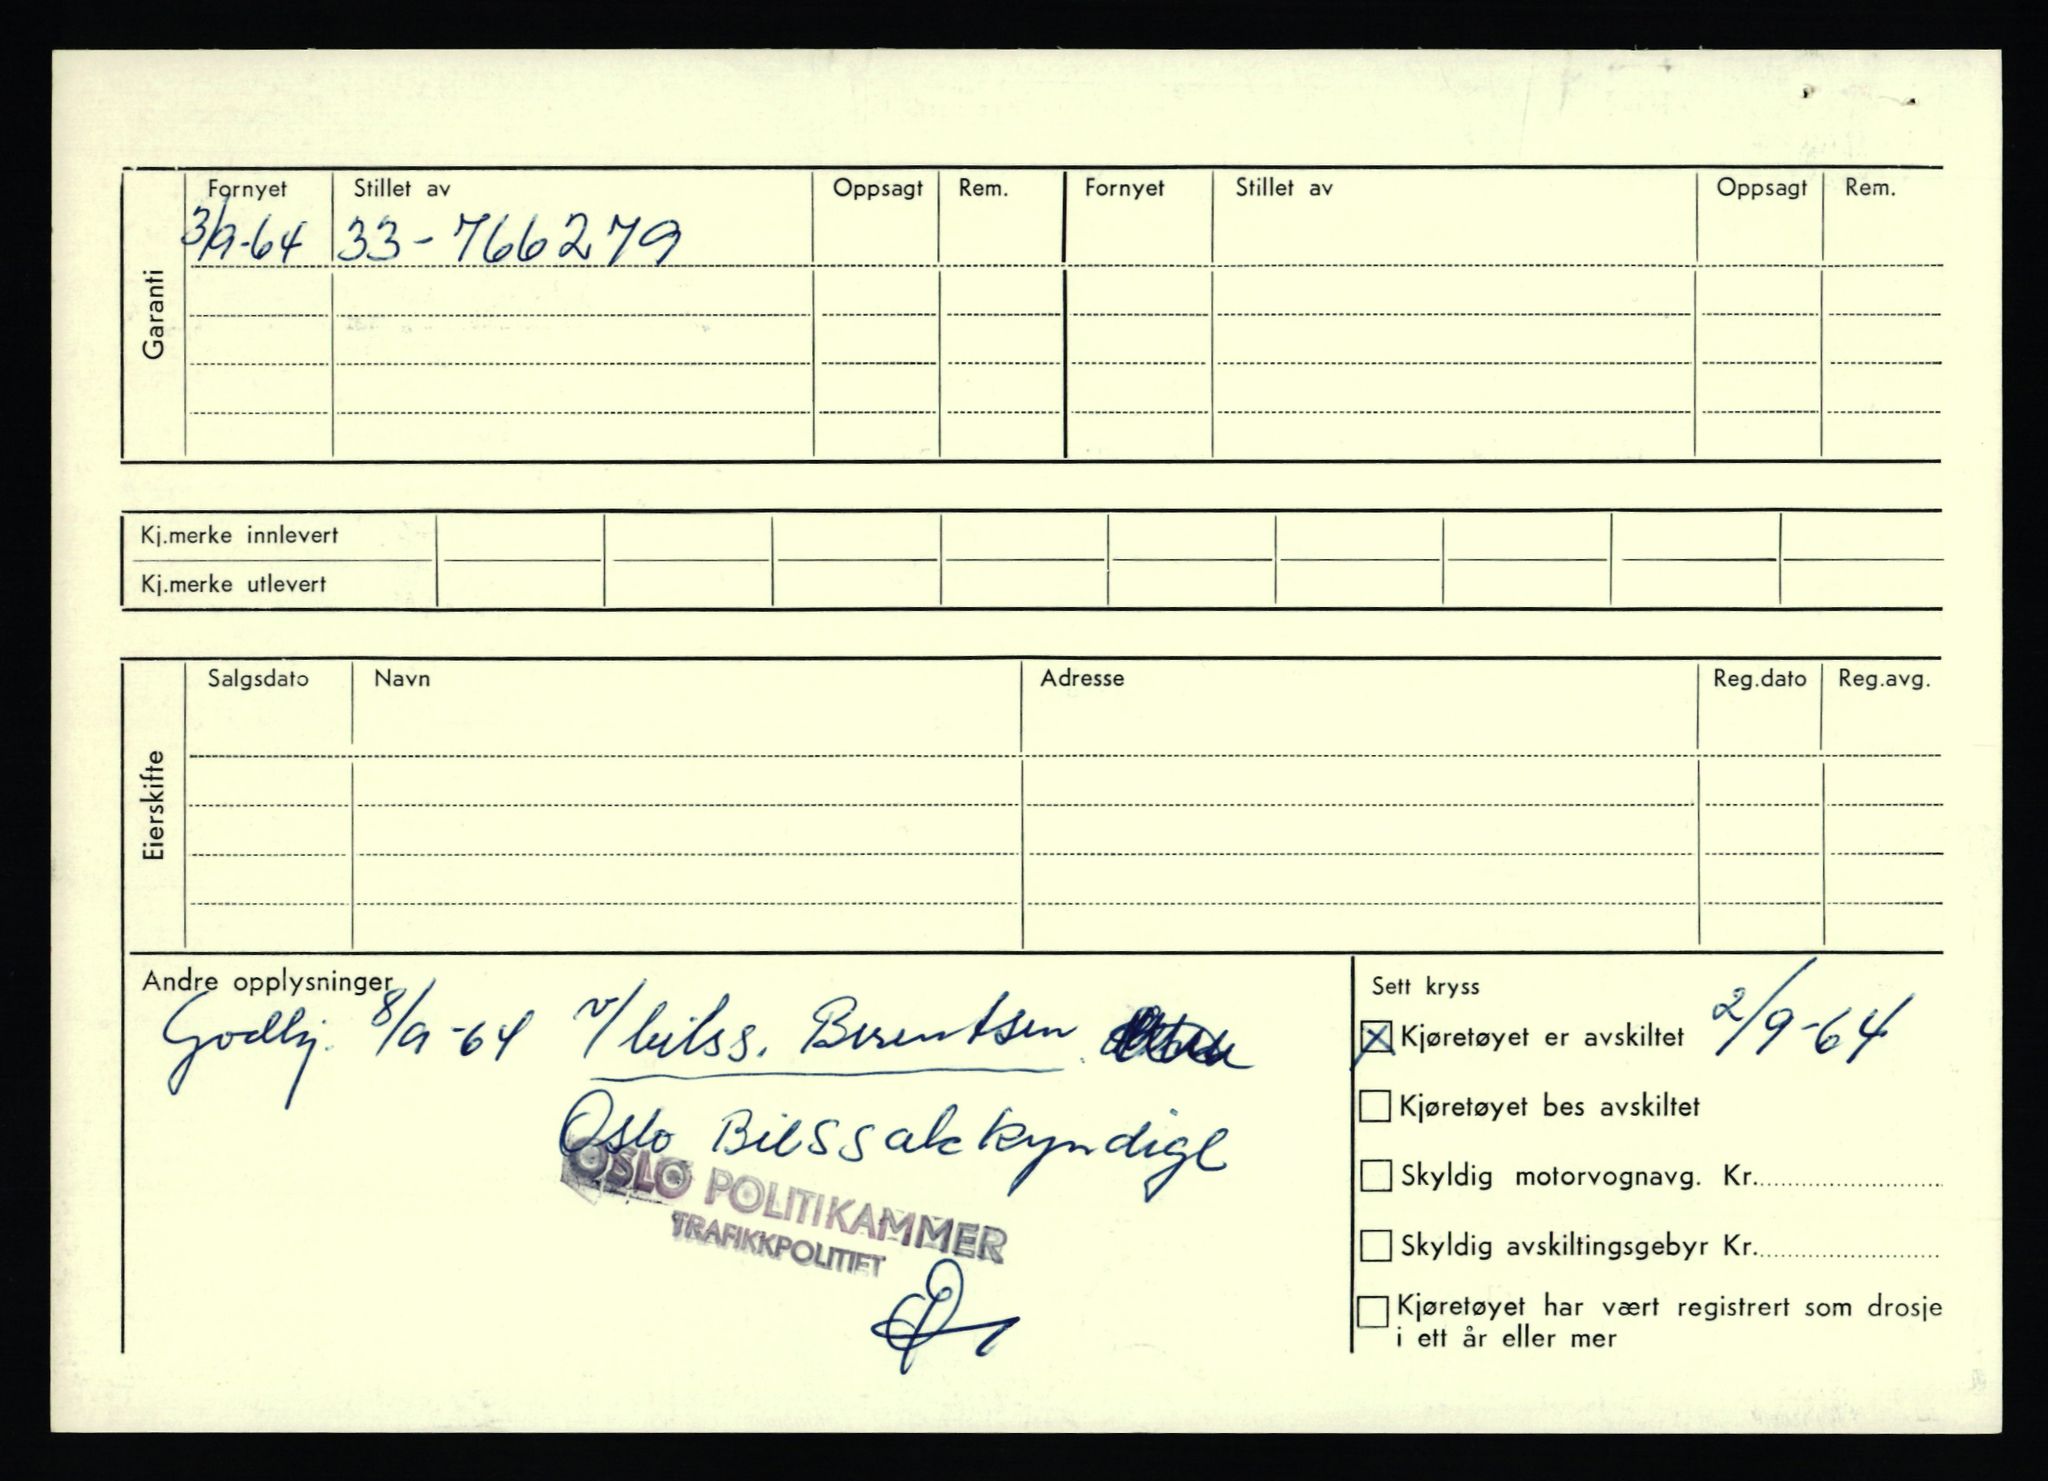 Garanti
Fornyet Stillet av Oppsagt Rem. Fornyet Stillet av Oppsagt Rem.
3/9-64 33-766279
Kj.merke innlevert
Kj.merke utlevert
Eierskifte
Salgsdato Navn Adresse Reg.dato Reg.avg.
Andre opplysninger
Godkj. 8/9-64 v/bilss. Berentsen
Oslo Bilssakkyndige
OSLO POLITIKAMMER
TRAFIKKPOLITIET
Sett kryss
Kjøretøyet er avskiltet 2/9-64
Kjøretøyet bes avskiltet
Skyldig motorvognavg. Kr.
Skyldig avskiltingsgebyr Kr.
Kjøretøyet har vært registrert som drosje
i ett år eller mer